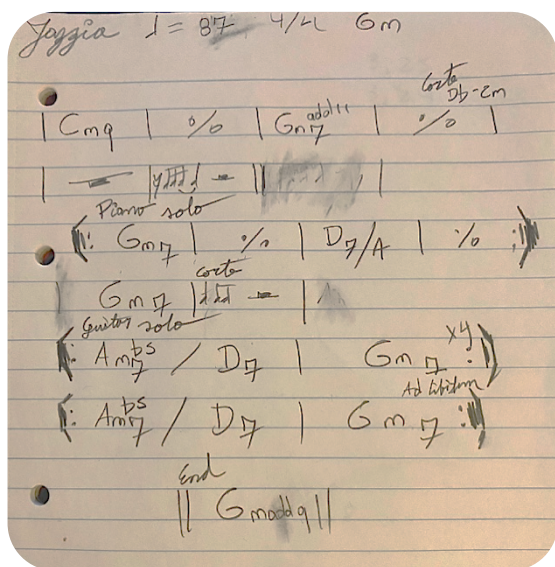 Jazzia ♩ = 87 4/4 Gm
Corte
Db-Cm
| Cm9 | % | Gm7 add11 | % |
Piano solo
|: Gm7 | % | D7/A | % :|
corte
| Gm7 |
Guitar solo
|: Am7 b5 / D7 | Gm7 :| x4
Ad libitum
|: Am7 b5 / D7 | Gm7 :|
End
|| Gmadd9 ||